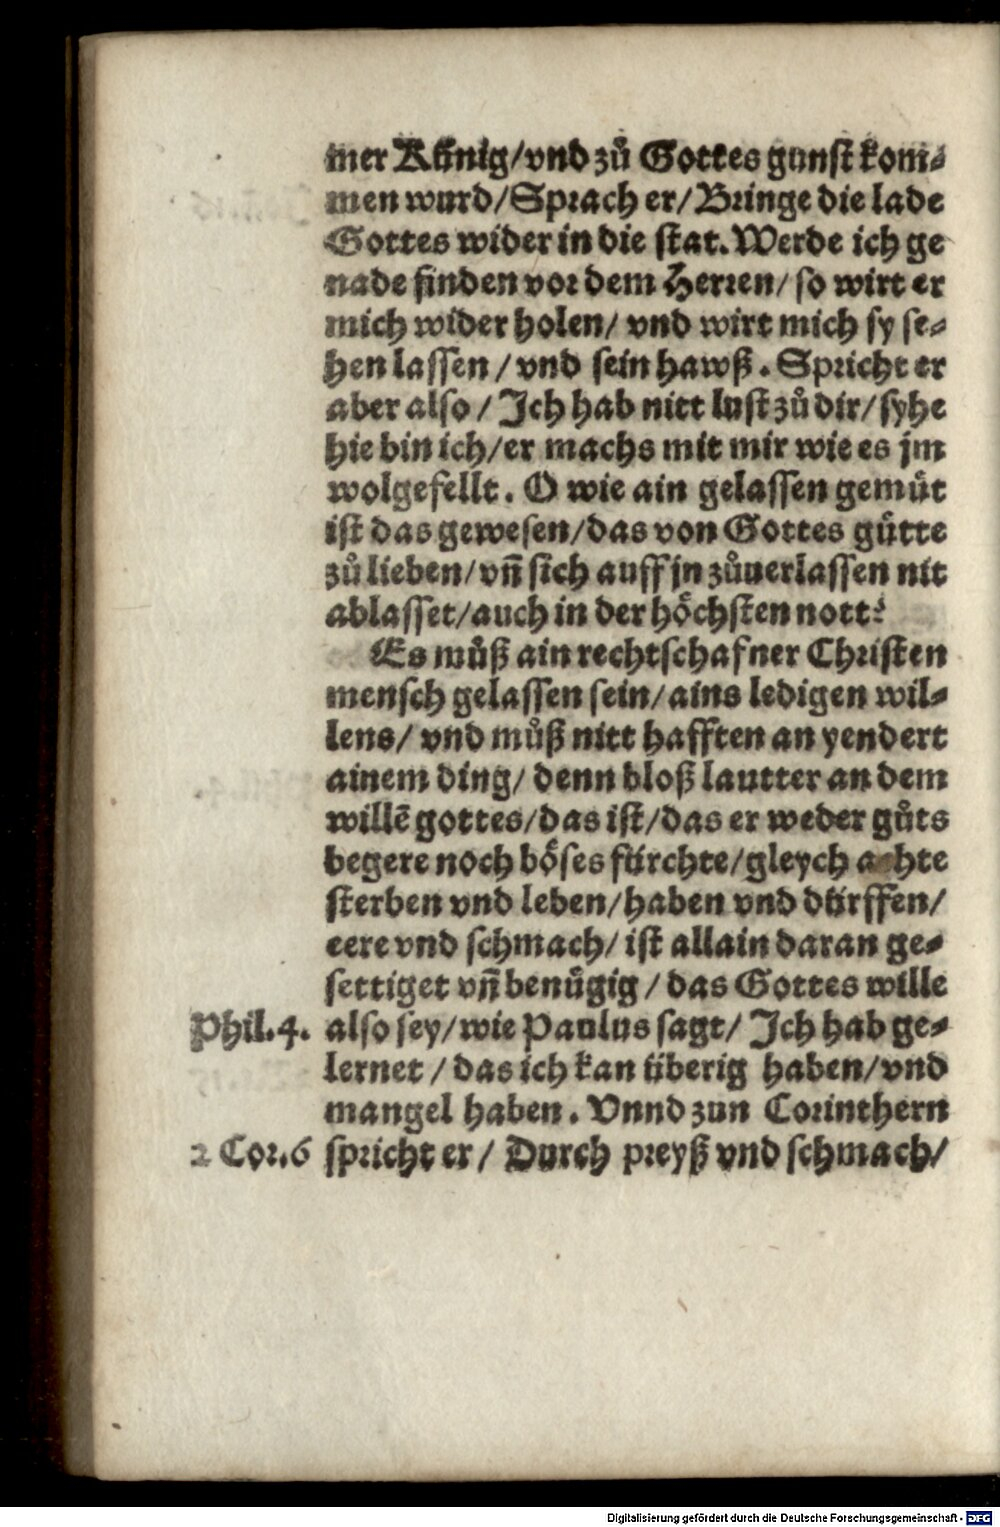 mer Künig/vnd zů Gottes gunst kom⸗
men wurd/Sprach er/Bringe die lade
Gottes wider in die stat. Werde ich ge
nade finden vor dem Herren/ so wirt er
mich wider holen/ vnd wirt mich sy se⸗
hen lassen / vnd sein hawß. Spricht er
aber also / Jch hab nitt lust zů dir/syhe
hie bin ich/er machs mit mir wie es jm
wolgefellt. O wie ain gelassen gemüt
ist das gewesen/das von Gottes gütte
zů lieben/vñ sich auff jn zůuerlassen nit
ablasset/auch in der höchsten nott?
Es můß ain rechtschafner Christen
mensch gelassen sein/ains ledigen wil⸗
lens/ vnd můß nitt hafften an yendert
ainem ding/ denn bloß lautter an dem
willē gottes/das ist/das er weder gůts
begere noch böses fürchte/gleych achte
sterben vnd leben/haben vnd dürffen/
eere vnd schmach/ ist allain daran ge⸗
settiget vñ benügig / das Gottes wille
Phil.4. also sey/wie Paulus sagt/ Jch hab ge⸗
lernet / das ich kan überig haben/vnd
mangel haben. Vnnd zun Corinthern
2 Cor.6 spricht er / Durch preyß vnd schmach/
Digitalisierung gefördert durch die Deutsche Forschungsgemeinschaft - DFG